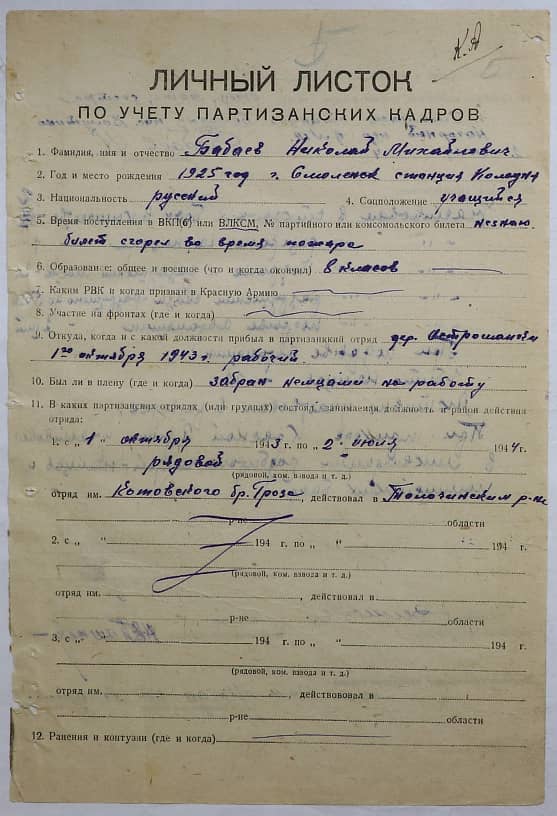 К. А
ЛИЧНЫЙ ЛИСТОК
ПО УЧЕТУ ПАРТИЗАНСКИХ КАДРОВ
1. Фамилия, имя и отчество Бабаев Николай Михайлович
2. Год и место рождения 1925 год г. Смоленск станция Колодня
3. Национальность русский 4. Соцположение учащийся
5. Время поступления в ВКП(б) или ВЛКСМ, № партийного или комсомольского билета незнаю
билет сгорел во время пожара
6. Образование: общее и военное (что и когда окончил) 8 класов
7. Каким РВК и когда призван в Красную Армию
8. Участие на фронтах (где и когда)
9. Откуда, когда и с какой должности прибыл в партизанский отряд дер.
1го октября 1943 г. рабочий
10. Был ли в плену (где и когда) забран немцами на работу
11. В каких партизанских отрядах (или группах) состоял, занимаемая должность и район действия
отряда:
1. с „ 1 " октября 1943 г. по „ 2 " июля 1944 г.
рядовой
(рядовой, ком. взвода и т. д.)
отряд им. Котовского бр. Гроза, действовал в Толочинским р-не
р-не области
2. с „ " 194 г. по „ " 194 г.
(рядовой, ком. взвода и т. д.)
отряд им. , действовал в
р-не области
3. с „ " 194 г. по „ " 194 г.
(рядовой, ком. взвода и т. д.)
отряд им. , действововал в
р-не области
12. Ранения и контузии (где и когда)